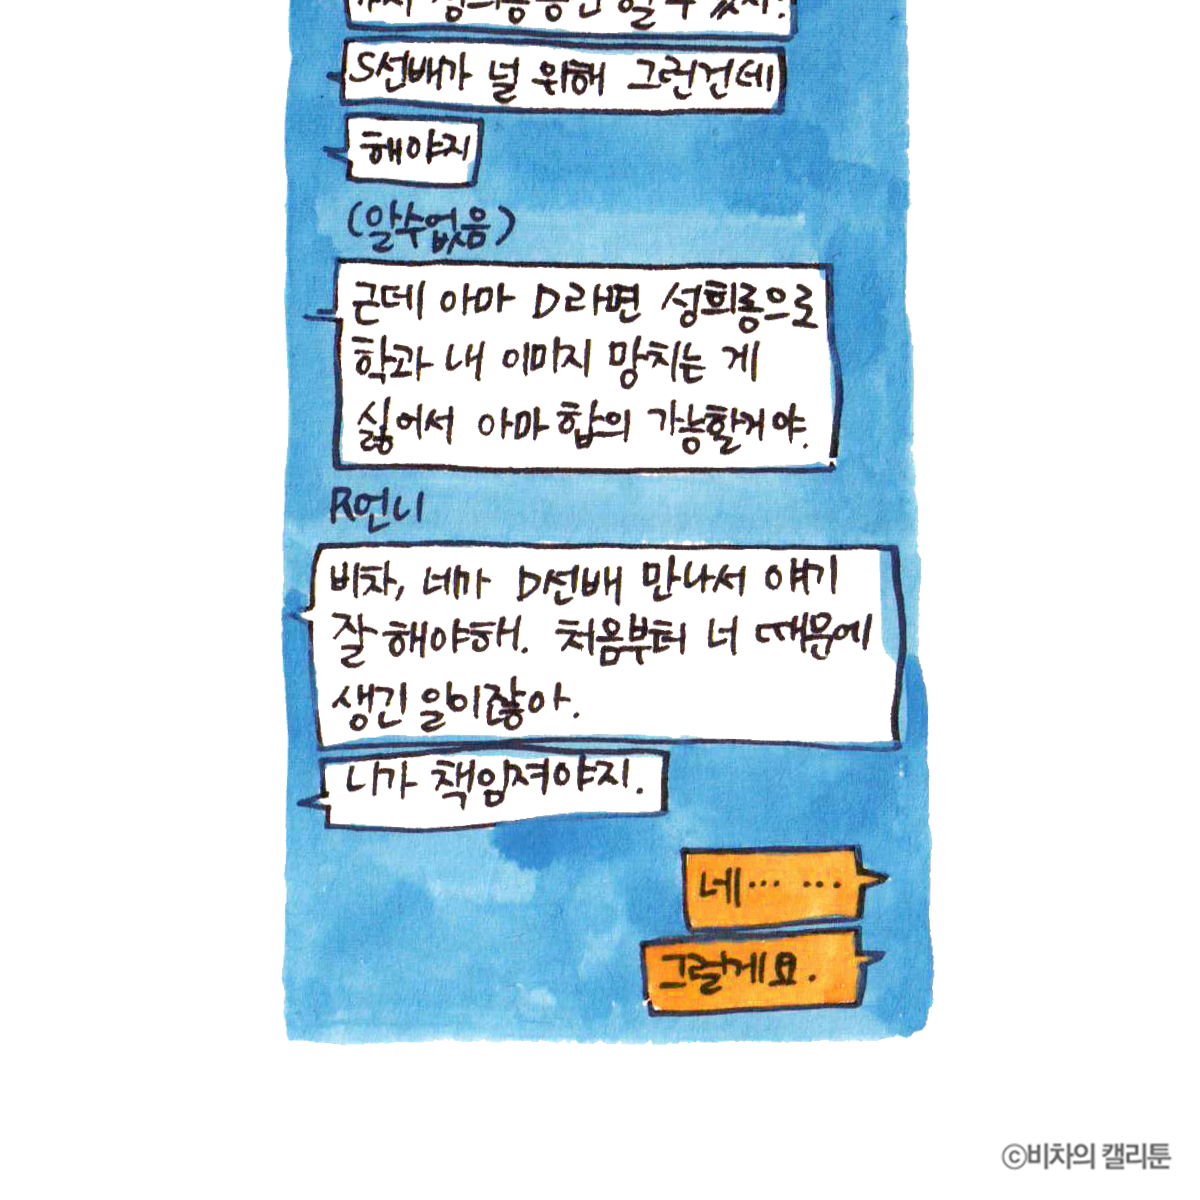 S선배가 널 위해 그런건데
해야지
(알수없음)
근데 아마 D라면 성희롱으로
학과 내 이미지 망치는 게
싫어서 아마 합의 가능할거야.
R언니
비차, 네가 D선배 만나서 얘기
잘 해야해. 처음부터 너 때문에
생긴 일이잖아.
니가 책임져야지.
네… …
그럴게요.
ⓒ비차의 캘리툰